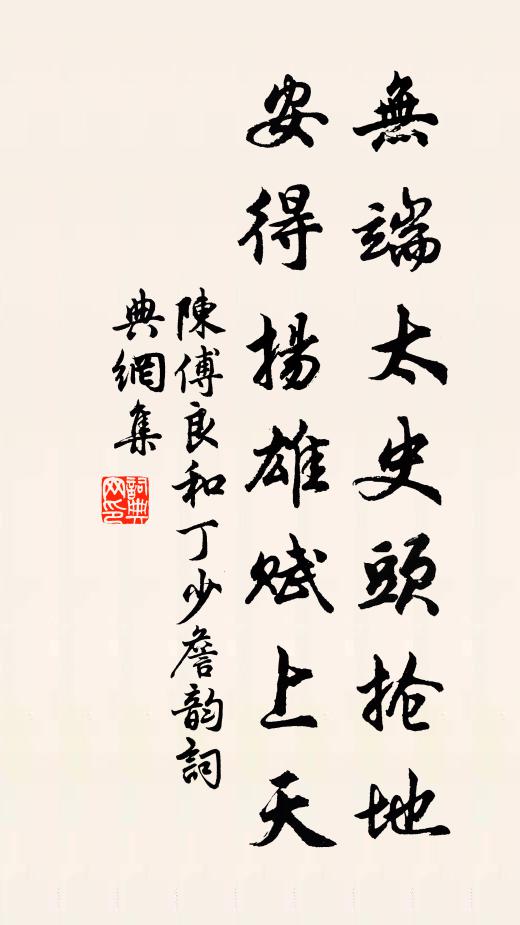 無端太史頭搶地
安得揚雄賦上天
陳傅良和丁少詹韵詞
典網集
詞典
网印